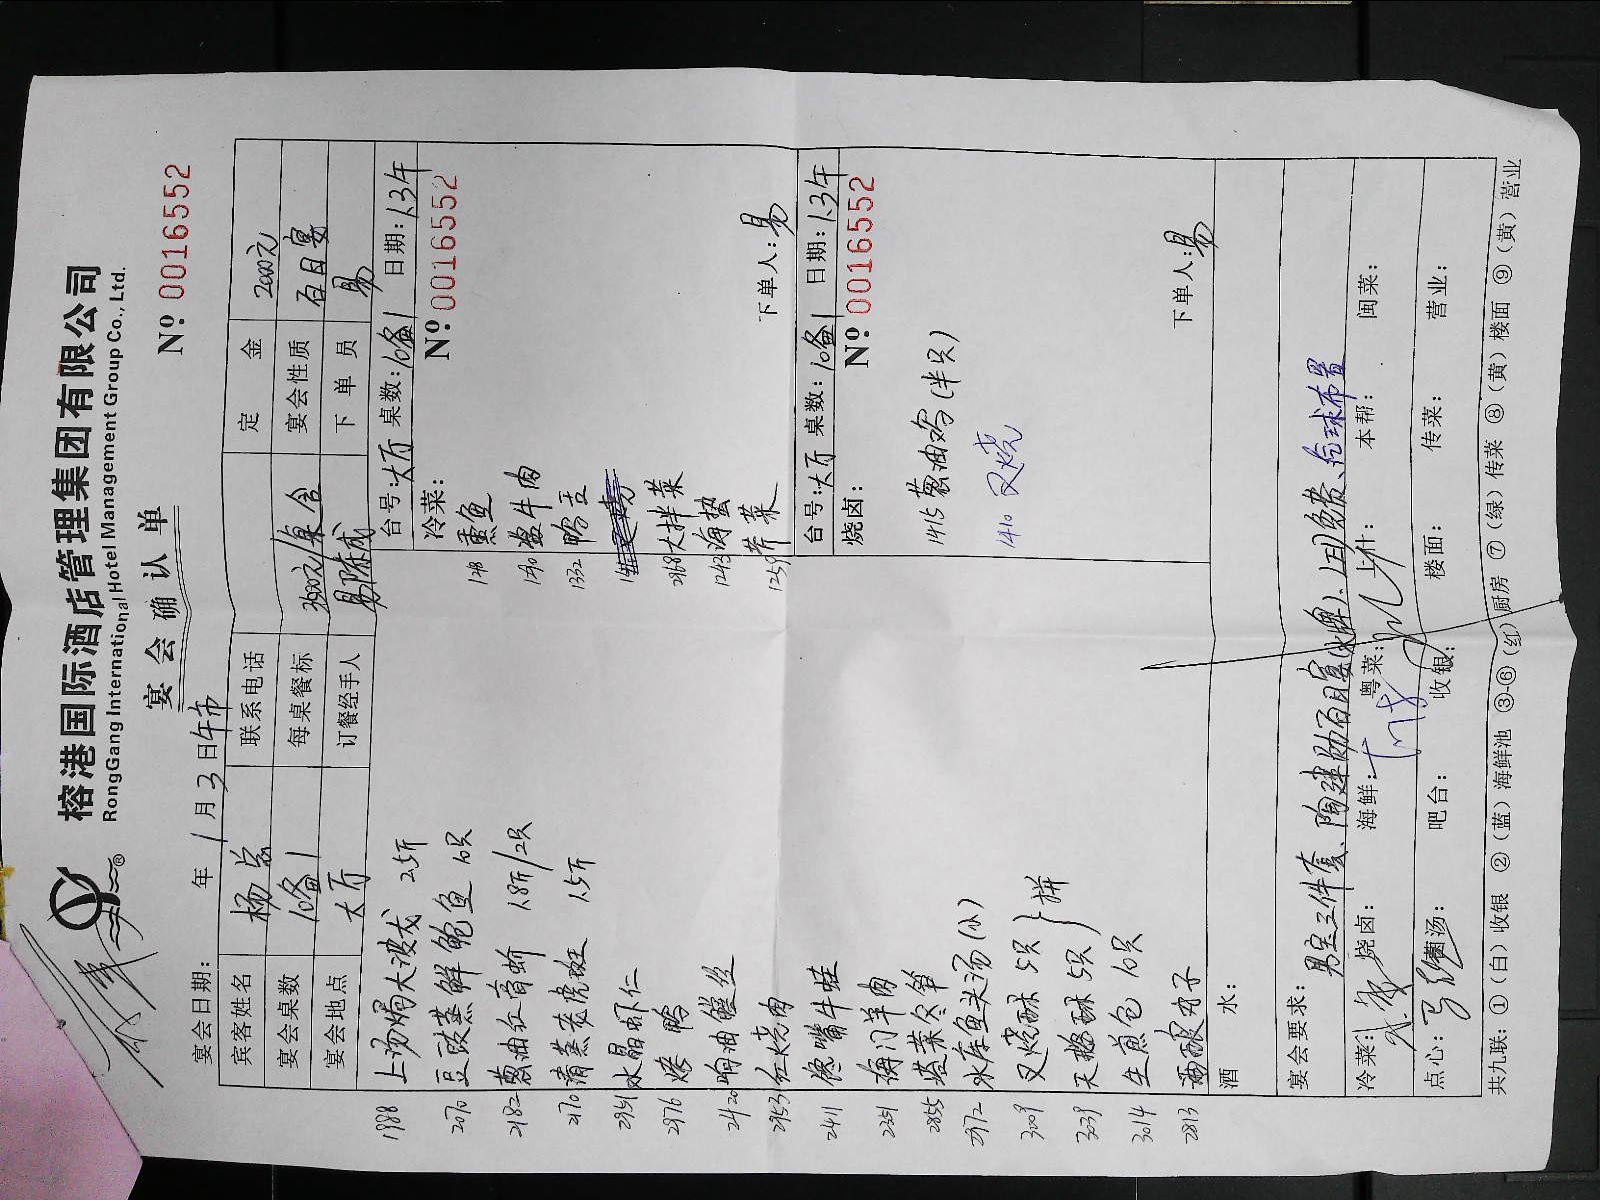 榕港国际酒店管理集团有限公司
RongGang International Hotel Management Group Co., Ltd.
宴会确认单
宴会日期： 年 1 月 3 日 午市
Nº 0016552
宾客姓名 杨总 联系电话 定金 2000元
宴会桌数 10备1 每桌餐标 宴会性质 百日宴
宴会地点 大厅 订餐经手人 下单员 易
台号：大厅 桌数：10备1 日期：1.3午
冷菜： Nº 0016552
熏鱼
1332 鸭舌
2968 大拌菜
1243 海蜇
1259
下单人：易
台号：大厅 桌数：10备1 日期：1.3午
烧卤： Nº 0016552
1415 葱油鸡（半只）
1410 叉烧
下单人：易
1988 上汤焗大波龙 2.5斤
2070 豆豉蒸鲜鲍鱼 10只
2182 葱油红膏蟹 1.8斤/2只
2170 清蒸老虎斑 1.5斤
2951 水晶虾仁
2976
2420 响油鳝丝
2953 红烧肉
2411 馋嘴牛蛙
2351 海门羊肉
2855 塔菜冬笋
2972 水库鱼头汤（小）
3009 叉烧酥 5只 } 拼
3039 天鹅酥 5只
3014 生煎包 10只
2813 酒酿圆子
酒水：
宴会要求：
冷菜： 烧卤： 海鲜： 粤菜： 上什： 本帮： 闽菜：
点心： 菌汤： 吧台： 收银： 楼面： 传菜： 营业：
共九联：①（白）收银 ②（蓝）海鲜池 ③-⑥（红）厨房 ⑦（绿）传菜 ⑧（黄）楼面 ⑨（黄）营业